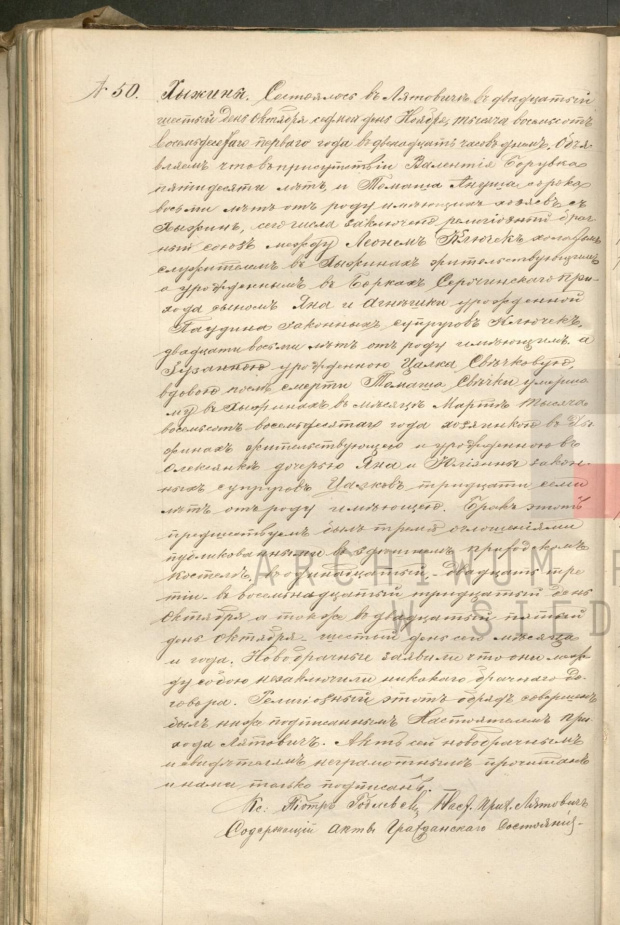 № 50. Хыжини. Состоялось въ Лятовичѣ въ двадцатый
шестый день Октября седмый день Ноября тысяча восемьсотъ
восемьдесятаго перваго года въ двенадцать часовъ днемъ. Объя
вляемъ что въ присутствіи Валентія Борувка
пятидесяти лѣтъ, и Томаша Януша сорока
восьми лѣтъ отъ роду имѣющихъ хозяевъ съ
Хыжинъ, сего числа заключенъ религіозный брач
ный союзъ между Леономъ Ключекъ холостымъ
служителемъ въ Хыжинахъ жительствующимъ
а урожденнымъ въ Боркахъ Серочинскаго При
хода сыномъ Яна и Агнешки урожденной
Паудина законныхъ супруговъ Ключекъ,
двадцати восьми лѣтъ отъ роду имѣющимъ а
Зузанною урожденною Цалка Свѣчковую,
вдовою послѣ смерти Томаша Свѣчки умерша
го въ Хыжинахъ въ мѣсяцѣ Мартѣ тысяча
восемьсотъ восемьдесятаго года хозяинкою въ Хы
жинахъ жительствующею и урожденною въ
Олексянкѣ дочерью Яна и Юліянны закон
ныхъ супруговъ Цалковъ тридцати семи
лѣтъ отъ роду имѣющею. Бракъ этотъ
предшествуемъ былъ тремя оглошеніями
публикованными въ здѣшномъ приходскомъ
костелѣ, въ одинадцатый двадцать тре
тій въ восемнадцатый тридцатый день
Октября, а также въ двадцатый пятый
день Октября шестый день сего мѣсяца
и года. Новобрачные заявили что они меж
ду собою незаключили никакого брачнаго до
говора. Религіозный этотъ обрядъ совершенъ
былъ нижеподписаннымъ Настоятелемъ при
хода Лятовичъ. Актъ сей новобрачнымъ
и свидѣтелямъ неграмотнымъ прочитанъ
и нами только подписанъ.
Кс: Піотръ Наст. прих. Лятовичъ
Содержащій Акты Гражданскаго Состоянія.
ARCHIWUM P
W SIED